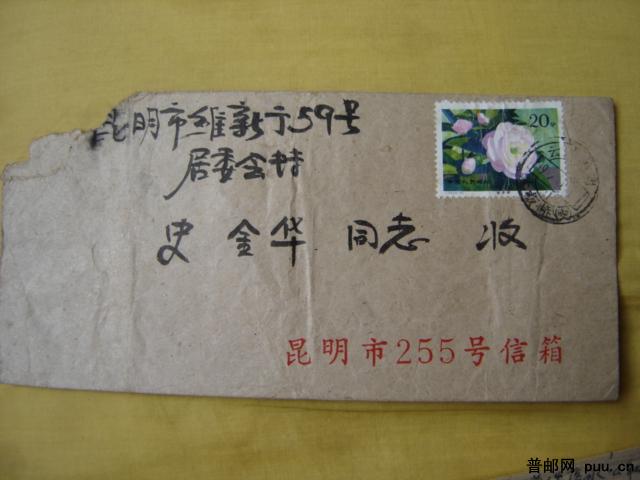 昆明市维新亍59号
居委会转
史金华 同志 收
20分
昆明市255号信箱
普邮网 puu.cn